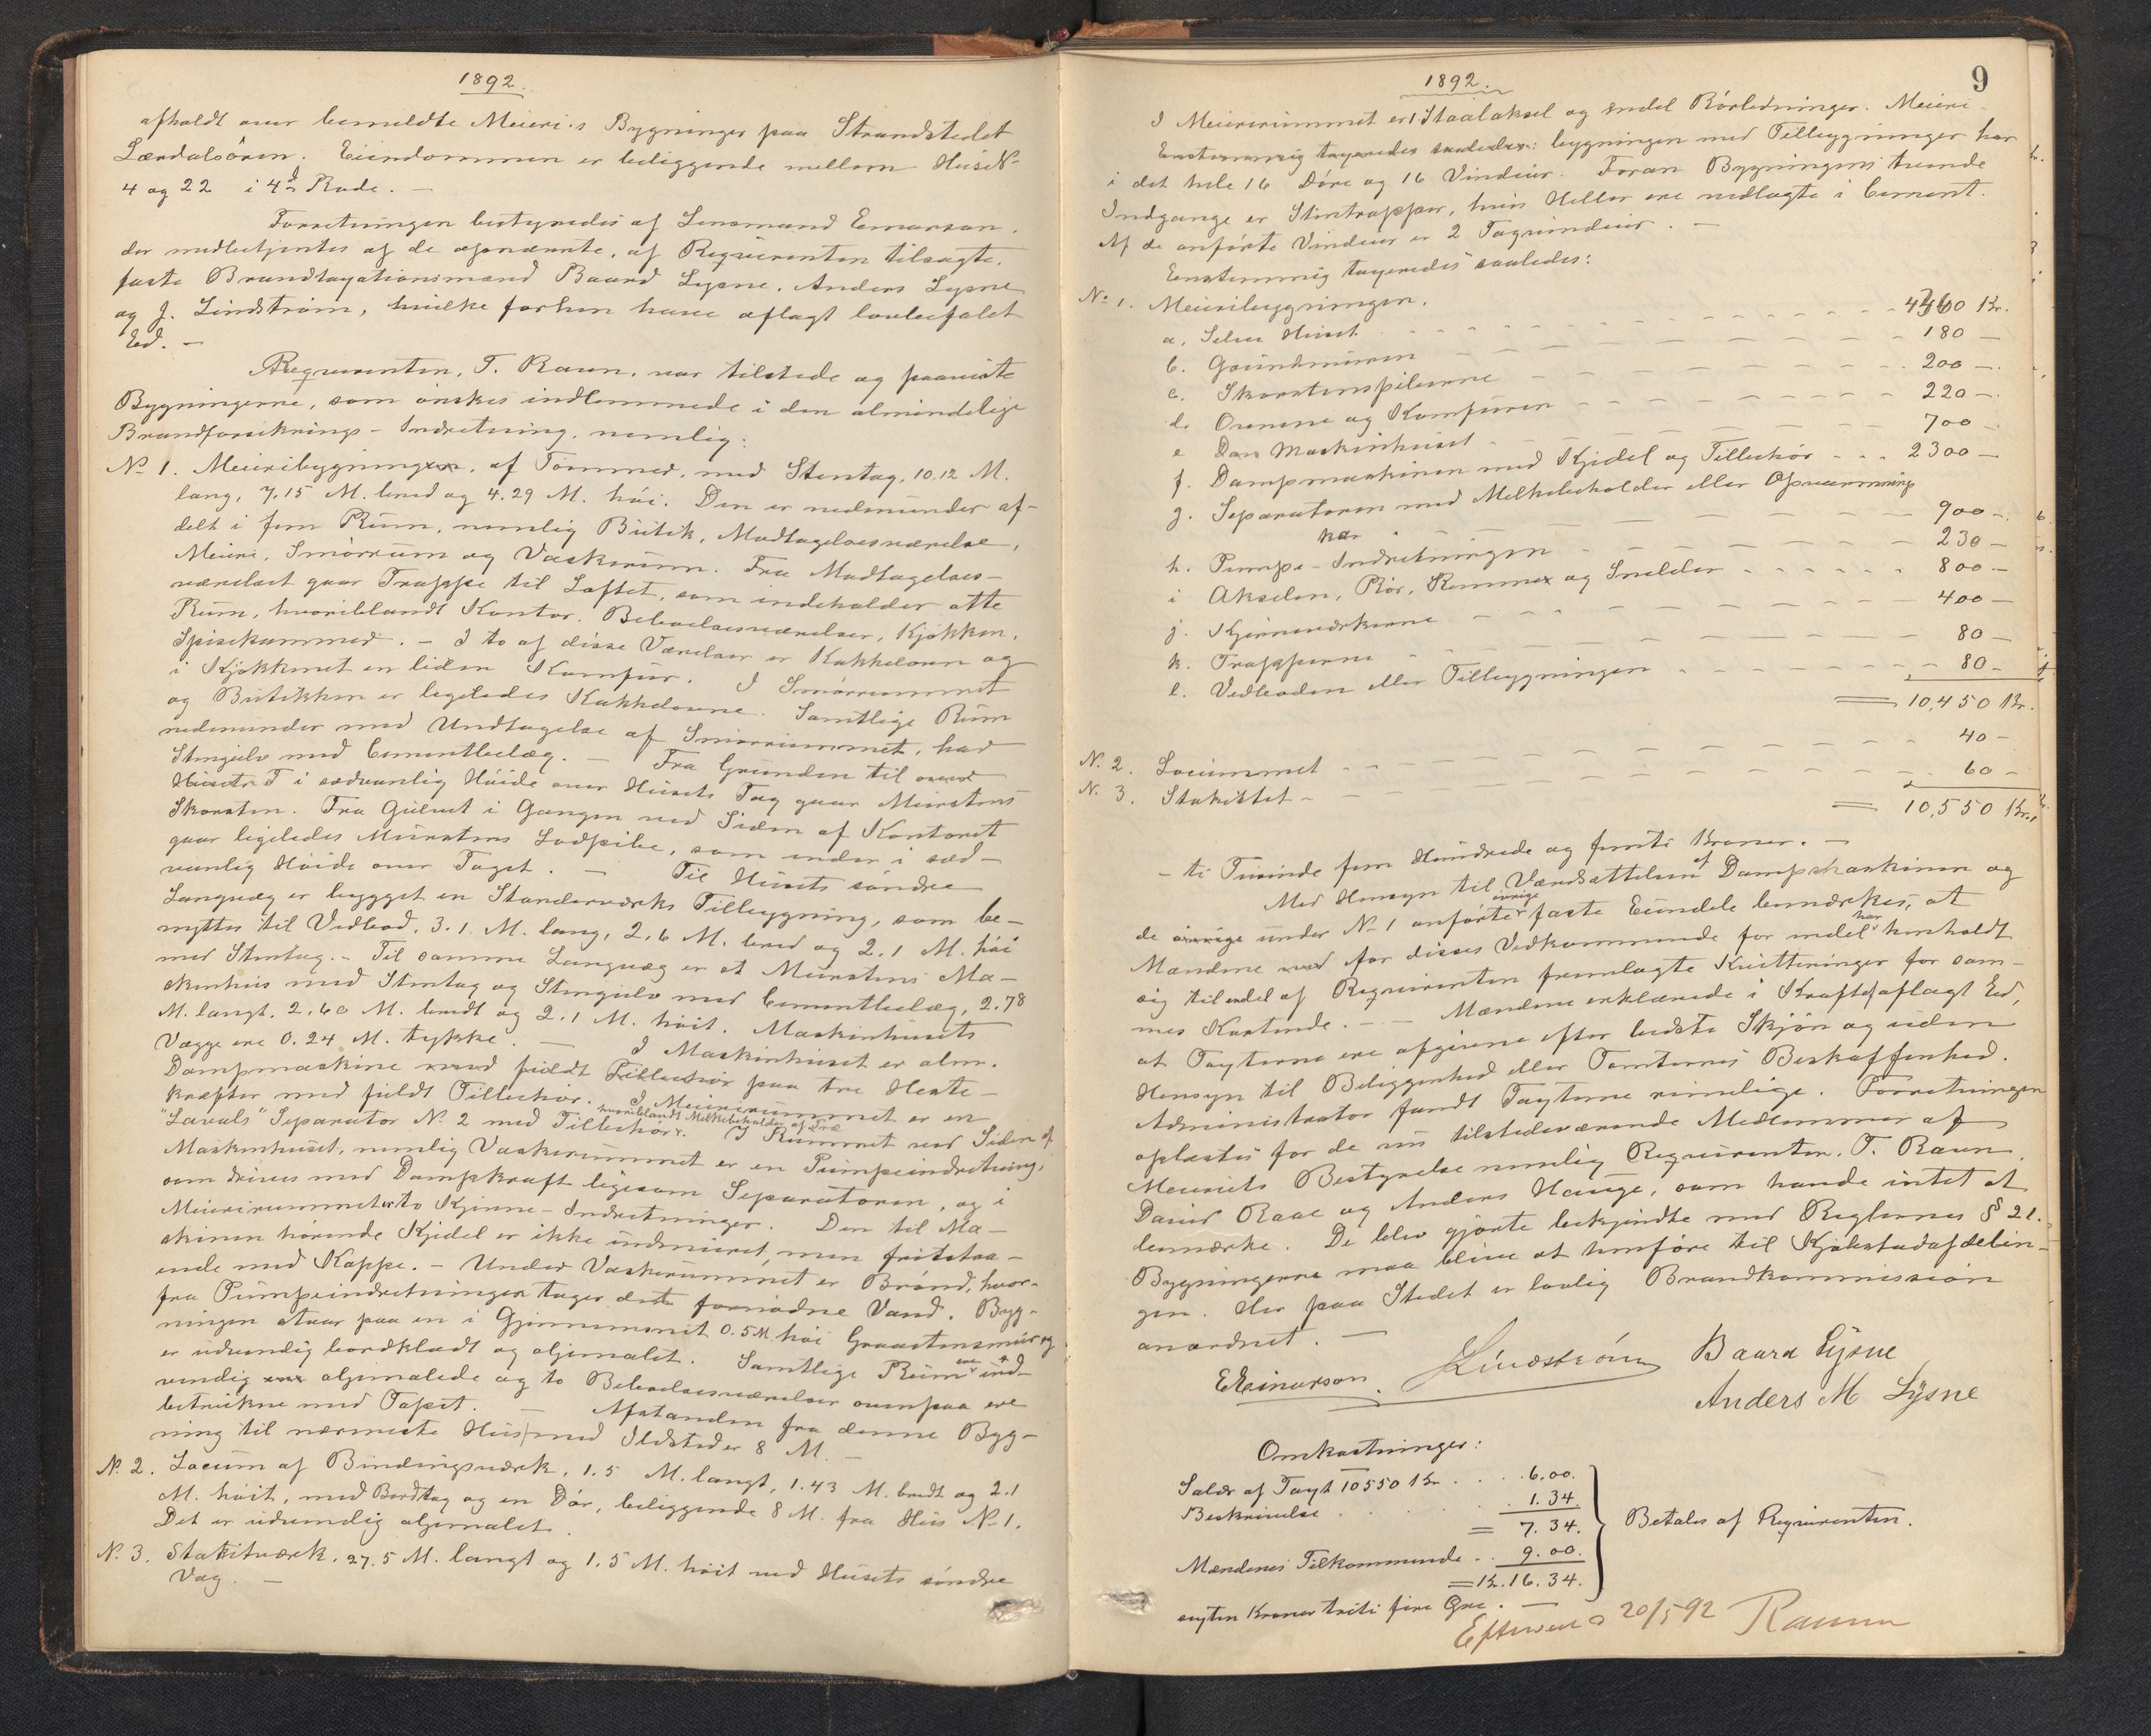 1892.
afholdt over bemeldte Meieri's Bygninger paa Strandstedet
Lærdalsören. Eiendommen er beliggende mellem Hus No
4 og 22 i 4de Rode. —
Forretningen bestyredes af Lensmand Einarson,
der medbetjentes af de opnævnte, af Reqvirenten tilsagte,
faste Brandtaxationsmænd Baard Lysne, Anders Lysne
og J. Lindström, hvilke forhen have aflagt lovbefalet
Ed. —
Reqvirenten, T. Raun, var tilstede og paaviste
Bygningerne, som önskes indlemmede i den almindelige
Brandforsikrings-Indretning, nemlig:
No 1. Meieribygningen, af Tömmer, med Stentag, 10.12 M.
lang, 7.15 M. bred og 4.29 M. höi. Den er nedenunder af-
delt i fem Rum, nemlig Butik, Modtagelsesværelse,
Meieri, Smörrum og Vaskerum. Fra Modtagelses-
værelset gaar Trappe til Loftet, som indeholder otte
Rum, hvoriblandt Kontor, Beboelsesværelser, Kjökken,
Spisekammer. — I to af disse Værelser er Kakkelovn og
i Kjökkenet en liden Komfur. I Smörrummet
og Butikken er ligeledes Kakkelovne. Samtlige Rum
nedenunder med Undtagelse af Smörrummet, har
Stengulv med Cementbelæg. — Fra Grunden til
Husets T i sædvanlig Höide over Husets Tag gaar Murstens
Skorsten. Fra Gulvet i Gangen ved Siden af Kontoret
gaar ligeledes Murstens Lodpibe, som ender i sæd-
vanlig Höide over Taget. — Til Husets söndre
Langvæg er bygget en Standerværks Tilbygning, som be-
nyttes til Vedbod, 3.1 M. lang, 2.6 M. bred og 2.1 M. höi
med Stentag. — Til samme Langvæg er et Murstens Ma-
skinhus med Stentag og Stengulv med Cementbelæg, 2.78
M. langt, 2.60 M. bredt og 2.1 M. höit. Maskinhusets
Vægge ere 0.24 M. tykke. — I Maskinhuset er alm.
Dampmaskine med fuldt Tilbehör paa tre Heste-
kræfter med fuldt Tilbehör. I Meierirummet er en
"Lavals" Separator No 2 med Tilbehör, hvoriblandt Melkebeholder af Træ. I Rummet ved Siden af
Maskinhuset, nemlig Vaskerummet er en Pumpeindretning,
som drives med Dampkraft ligesom Separatoren, og i
Meierirummet er to Kjerne-Indretninger. Den til Ma-
skinen hörende Kjedel er ikke indmuret, men fritstaa-
ende med Kappe. — Under Vaskerummet er Brönd, hvor-
fra Pumpeindretningen tager det fornödne Vand. Byg-
ningen staar paa en i Gjennemsnit 0.5 M. höi Graastensmur og
er udvendig bordklædt og oljemalet. Samtlige Rum ere ind-
vendig oljemalede og to Beboelsesværelser ovenpaa ere
betrukne med Tapet. — Afstanden fra denne Byg-
ning til nærmeste Hus med Ildsted er 8 M. —
No 2. Locum af Bindingsværk, 1.5 M. langt, 1.43 M. bredt og 2.1
M. höit, med Bordtag og en Dör, beliggende 8 M. fra Hus No 1.
Det er udvendig oljemalet.
No 3. Stakitværk, 27.5 M. langt og 1.5 M. höit ved Husets söndre
Væg. —
1892.
9
I Meierirummet er 1 Staalaksel og endel Rörledninger. Meieri-
Enstemmig taxeredes saaledes: bygningen med Tilbygninger har
i det hele 16 Döre og 16 Vinduer. Foran Bygningens trende
Indgange er Stentrapper, hvis Heller ere nedlagte i Cement.
Af de anförte Vinduer er 2 Tagvinduer. —
Enstemmig taxeredes saaledes:
No 1. Meieribygningen.
a. Selve Huset 4360 Kr.
b. Grundmuren 180 —
c. Skorstenspiberne 200 —
d. Ovnene og Komfuren 220 —
e Maskinhuset 700 —
f. Dampmaskinen med Kjedel og Tilbehör 2300 —
g. Separatoren med Melkebeholder eller Opvarmnings
kar 900 —
h. Pumpe-Indretningen 230 —
i Akselen, Rör, Remmer og Snelder 800 —
j. Kjerneværkerne 400 —
k. Trapperne 80 —
l. Vedboden eller Tilbygningen 80 —
= 10,450 Kr.
N. 2. Locummet 40 —
N. 3. Stakittet 60 —
= 10,550 Kr.
— ti Tusinde fem Hundrede og femti Kroner. —
Med Hensyn til Værdsættelsen af Dampmaskinen og
de under No 1 anförte övrige faste Eiendele bemærkes, at
Mændene for disses Vedkommende for endel har henholdt
sig til endel af Reqvirenten fremlagte Kvitteringer for sam-
mes Kostende. — Mændene erklærede i Kraft af aflagt Ed,
at Taxterne ere afgivne efter bedste Skjön og uden
Hensyn til Beliggenhed eller Tomternes Beskaffenhed.
Administrator fandt Taxterne rimelige. Forretningen
oplæstes for de nu tilstedeværende Medlemmer af
Meieriets Bestyrelse nemlig Reqvirenten, T. Raun,
David Raae og Anders Hauge, som havde intet at
bemærke. De blev gjorte bekjendte med Reglernes § 21.
Bygningerne maa blive at henföre til Kjöbstadafdelin-
gen. Her paa Stedet er lovlig Brandkommission
anordnet. —
E Einarson. Lindström Baard Lysne
Anders M Lysne
Omkostninger:
Salær af Taxt 10550 Kr. 6.00.
Beskrivelse 1.34.
= 7.34. Betales af Reqvirenten.
Mændenes Tilkommende 9.00.
= Kr. 16.34.
sexten Kroner treti fire Öre. —
20/5 92 Raunn